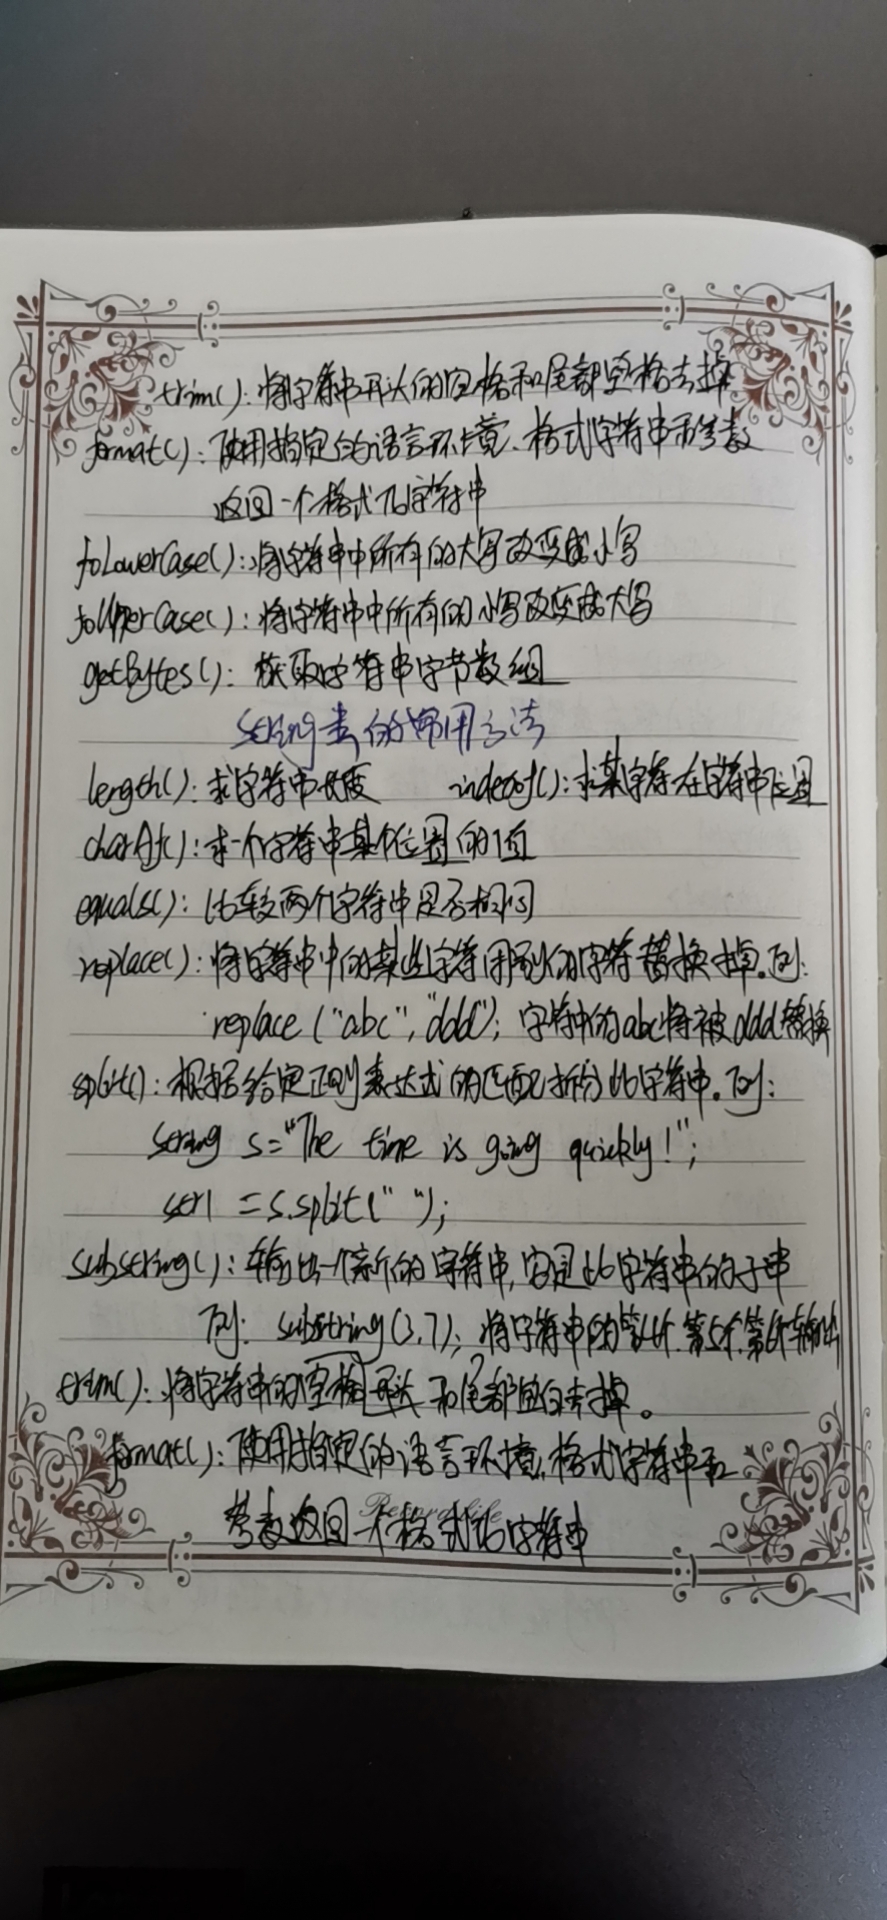 trim(): 将字符串开头的空格和尾部空格去掉
format(): 使用指定的语言环境、格式字符串和参数
返回一个格式化字符串
toLowerCase(): 将字符串中所有的大写改变成小写
toUpperCase(): 将字符串中所有的小写改变成大写
getBytes(): 获取字符串字节数组
String类的常用方法
length(): 求字符串长度 indexof(): 求某字符在字符串位置
charAt(): 求一个字符串某个位置的值
equals(): 比较两个字符串是否相同
replace(): 将字符串中的某些字符用别的字符替换掉。例:
replace("abc","ddd"); 字符串中的abc将被ddd替换
split(): 根据给定正则表达式的匹配拆分此字符串。例:
string s="The time is going quickly!";
str1 =s.split(" ");
substring(): 输出一个新的字符串,它是此字符串的子串
例: substring(3,7); 将字符串的第4个.第5个.第6个输出
trim(): 将字符串的空格开头和尾部空白去掉。
format(): 使用指定的语言环境、格式字符串和
参数返回一个格式化字符串